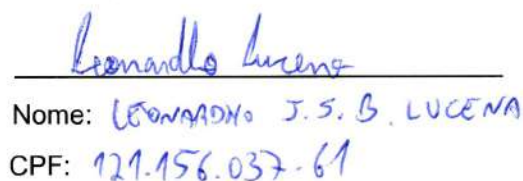 Leonardho Lucena
Nome: LEONARDHO J.S.B. LUCENA
CPF: 121.156.037-61